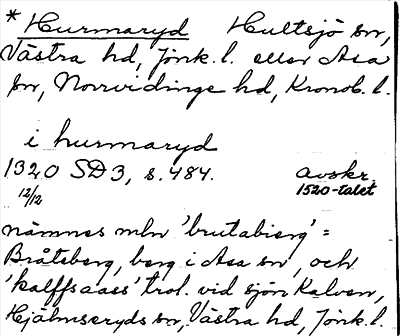 * Hurmaryd Hultsjö sn,
Västra hd, Jönk. l. eller Asa
sn, Norrvidinge hd, Kronob. l.
i hurmaryd
1320 SD 3, s. 484. avskr.
12/12 1520-talet
nämnes mln 'brutabierg' =
Bråtsberg, berg i Asa sn, och
'kalffsaass' trol. vid sjön Kalven,
Hjälmseryds sn, Västra hd, Jönk. l.